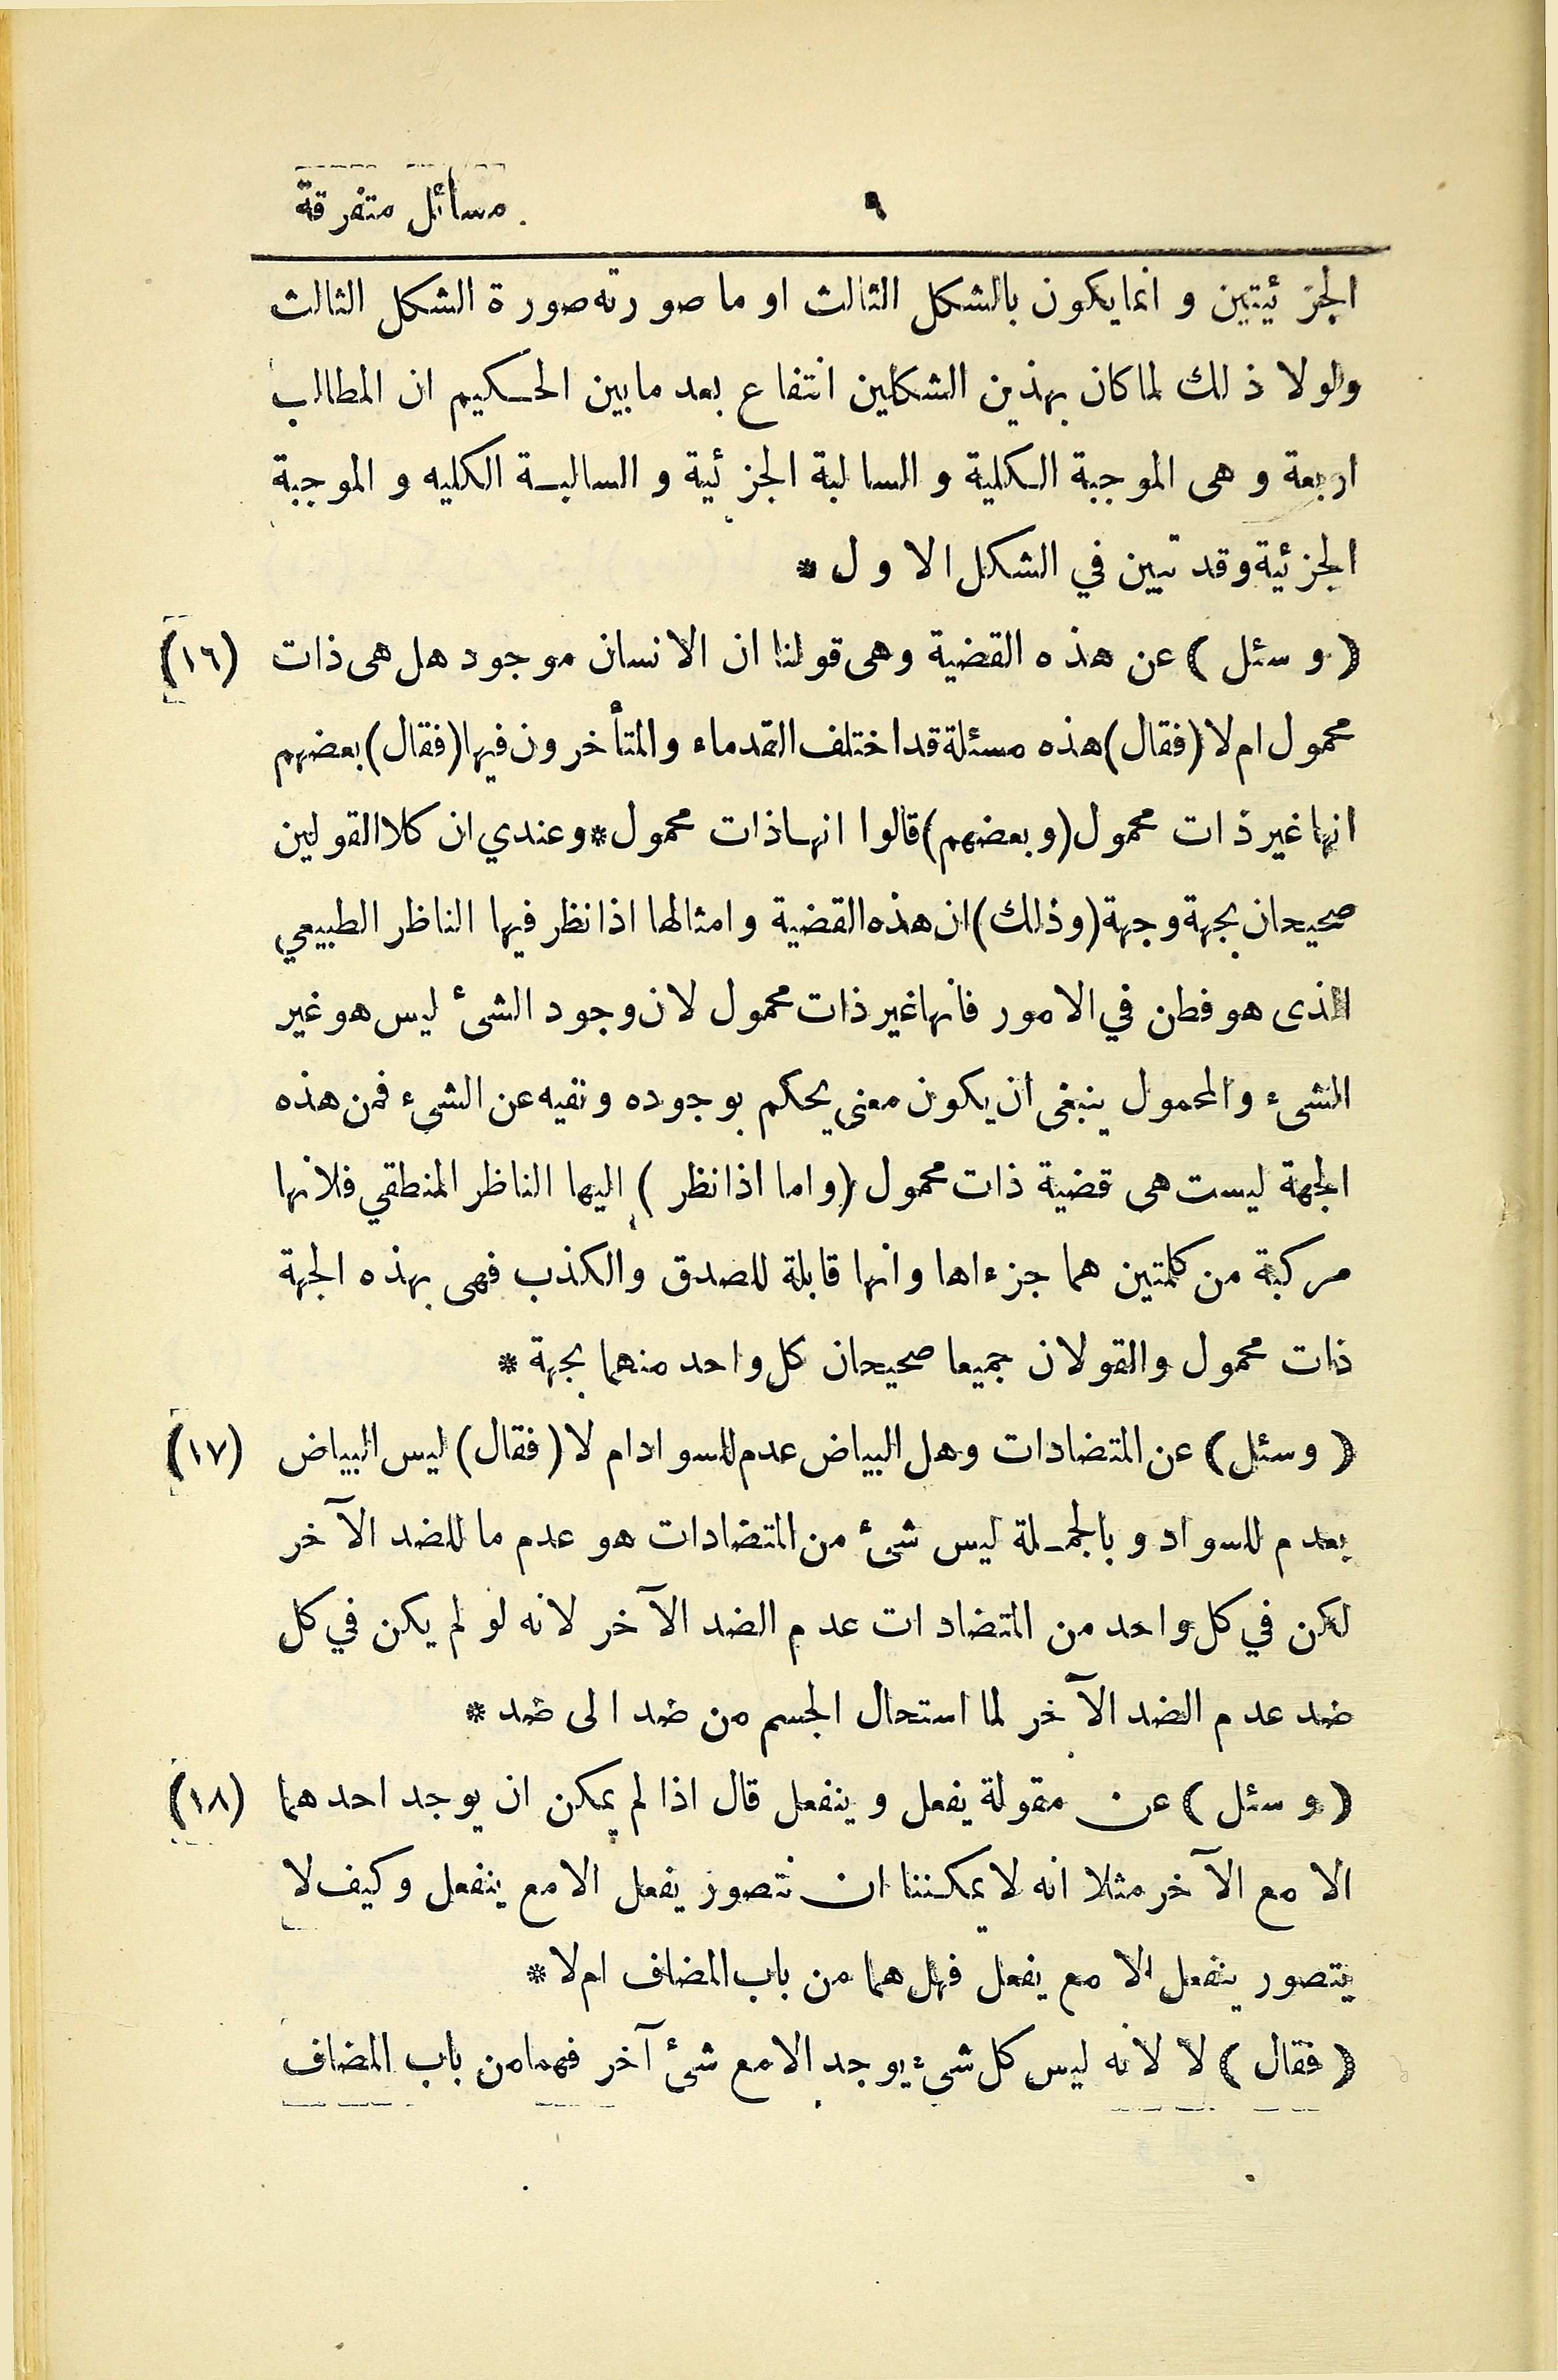 ٩ مسائل متفرقة
الجزئيتين وانما يكون بالشكل الثالث او ما صورته صورة الشكل الثالث
ولولا ذلك لما كان بهذين الشكلين انتفاع بعد ما بين الحكيم ان المطالب
اربعة وهى الموجبة الكلية والسالبة الجزئية والسالبة الكليه والموجبة
الجزئية وقد تبين في الشكل الاول *
(وسئل) عن هذه القضية وهى قولنا ان الانسان موجود هل هى ذات (١٦)
محمول ام لا (فقال) هذه مسئلة قد اختلف القدماء والمتأخرون فيها (فقال) بعضهم
انها غير ذات محمول (وبعضهم) قالوا انها ذات محمول * وعندي ان كلا القولين
صحيحان بجهة وجهة (وذلك) ان هذه القضية وامثالها اذا نظر فيها الناظر الطبيعي
الذى هو فطن في الامور فانها غير ذات محمول لان وجود الشئ ليس هو غير
الشىء والمحمول ينبغى ان يكون معنى يحكم بوجوده ونفيه عن الشىء فمن هذه
الجهة ليست هى قضية ذات محمول (واما اذا نظر) اليها الناظر المنطقي فلانها
مركبة من كلمتين هما جزءاها وانها قابلة للصدق والكذب فهى بهذه الجهة
ذات محمول والقولان جميعا صحيحان كل واحد منهما بجهة *
(وسئل) عن المتضادات وهل البياض عدم للسواد ام لا (فقال) ليس البياض (١٧)
بعدم للسواد وبالجملة ليس شئ من المتضادات هو عدم ما للضد الآخر
لكن في كل واحد من المتضادات عدم الضد الآخر لانه لو لم يكن في كل
ضد عدم الضد الآخر لما استحال الجسم من ضد الى ضد *
(وسئل) عن مقولة يفعل وينفعل قال اذا لم يمكن ان يوجد احدهما (١٨)
الا مع الآخر مثلا انه لا يمكننا ان نتصور يفعل الا مع ينفعل وكيف لا
يتصور ينفعل الا مع يفعل فهل هما من باب المضاف ام لا *
(فقال) لا لانه ليس كل شىء يوجد الا مع شئ آخر فهما من باب المضاف